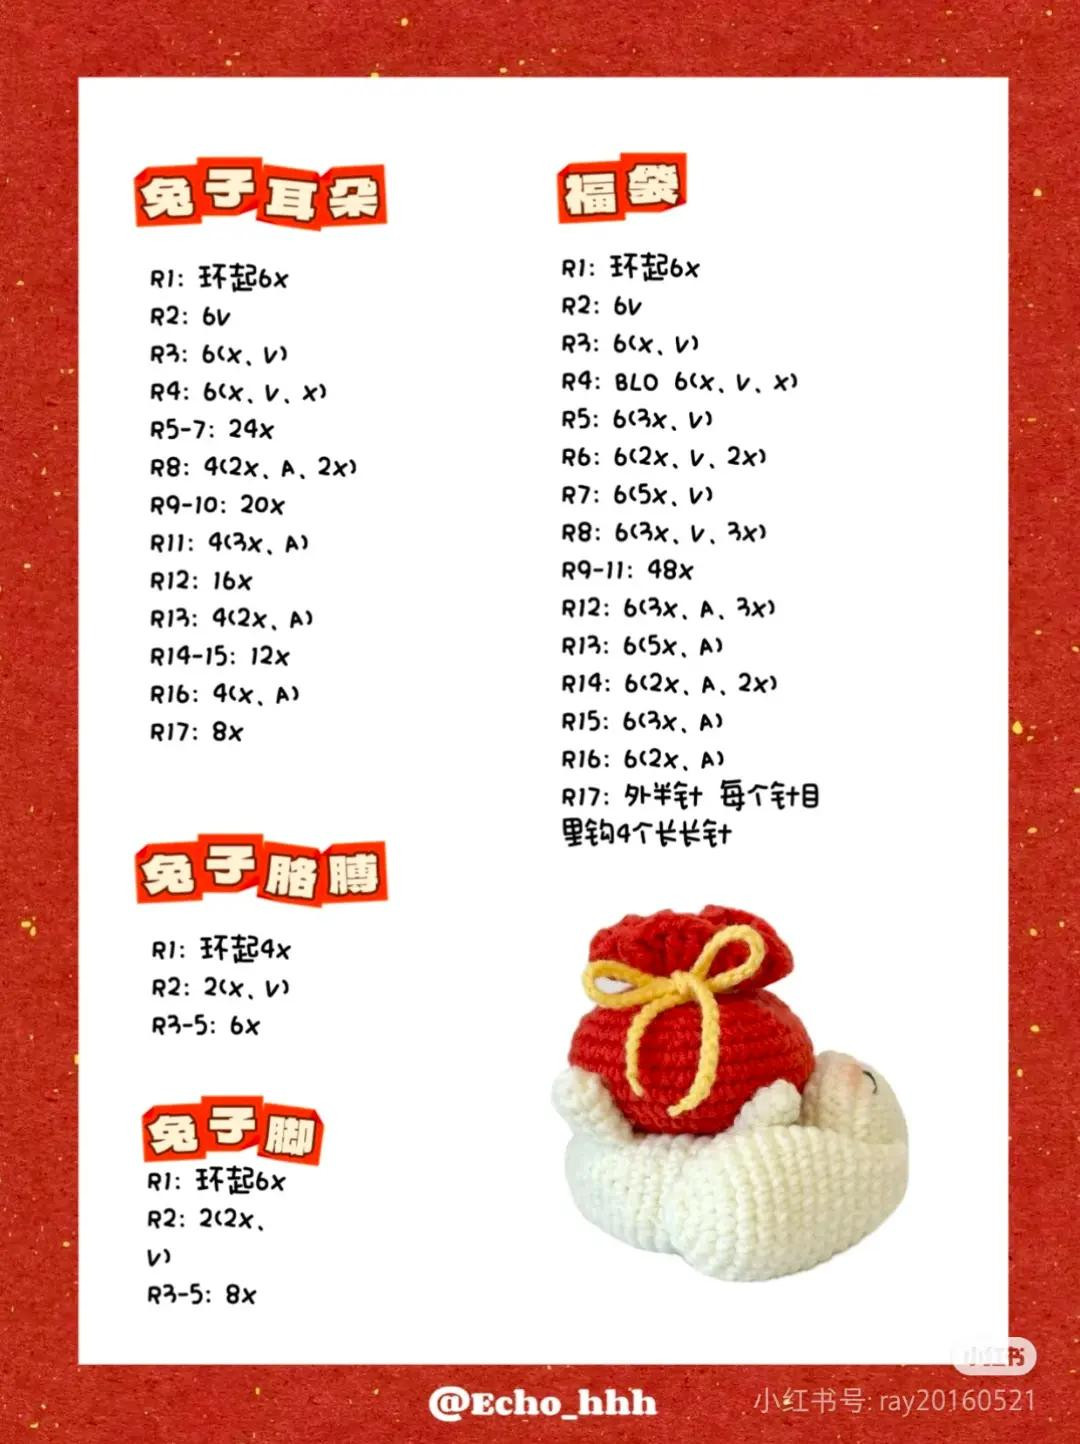 兔子耳朵
R1: 环起6x
R2: 6V
R3: 6(x、V)
R4: 6(x、V、x)
R5-7: 24x
R8: 4(2x、A、2x)
R9-10: 20x
R11: 4(3x、A)
R12: 16x
R13: 4(2x、A)
R14-15: 12x
R16: 4(x、A)
R17: 8x
兔子胳膊
R1: 环起4x
R2: 2(x、V)
R3-5: 6x
兔子脚
R1: 环起6x
R2: 2(2x、
V)
R3-5: 8x
福袋
R1: 环起6x
R2: 6V
R3: 6(x、V)
R4: BLO 6(x、V、x)
R5: 6(3x、V)
R6: 6(2x、V、2x)
R7: 6(5x、V)
R8: 6(3x、V、3x)
R9-11: 48x
R12: 6(3x、A、3x)
R13: 6(5x、A)
R14: 6(2x、A、2x)
R15: 6(3x、A)
R16: 6(2x、A)
R17: 外半针 每个针目
里钩4个长长针
小红书
@Echo_hhh
小红书号: ray20160521